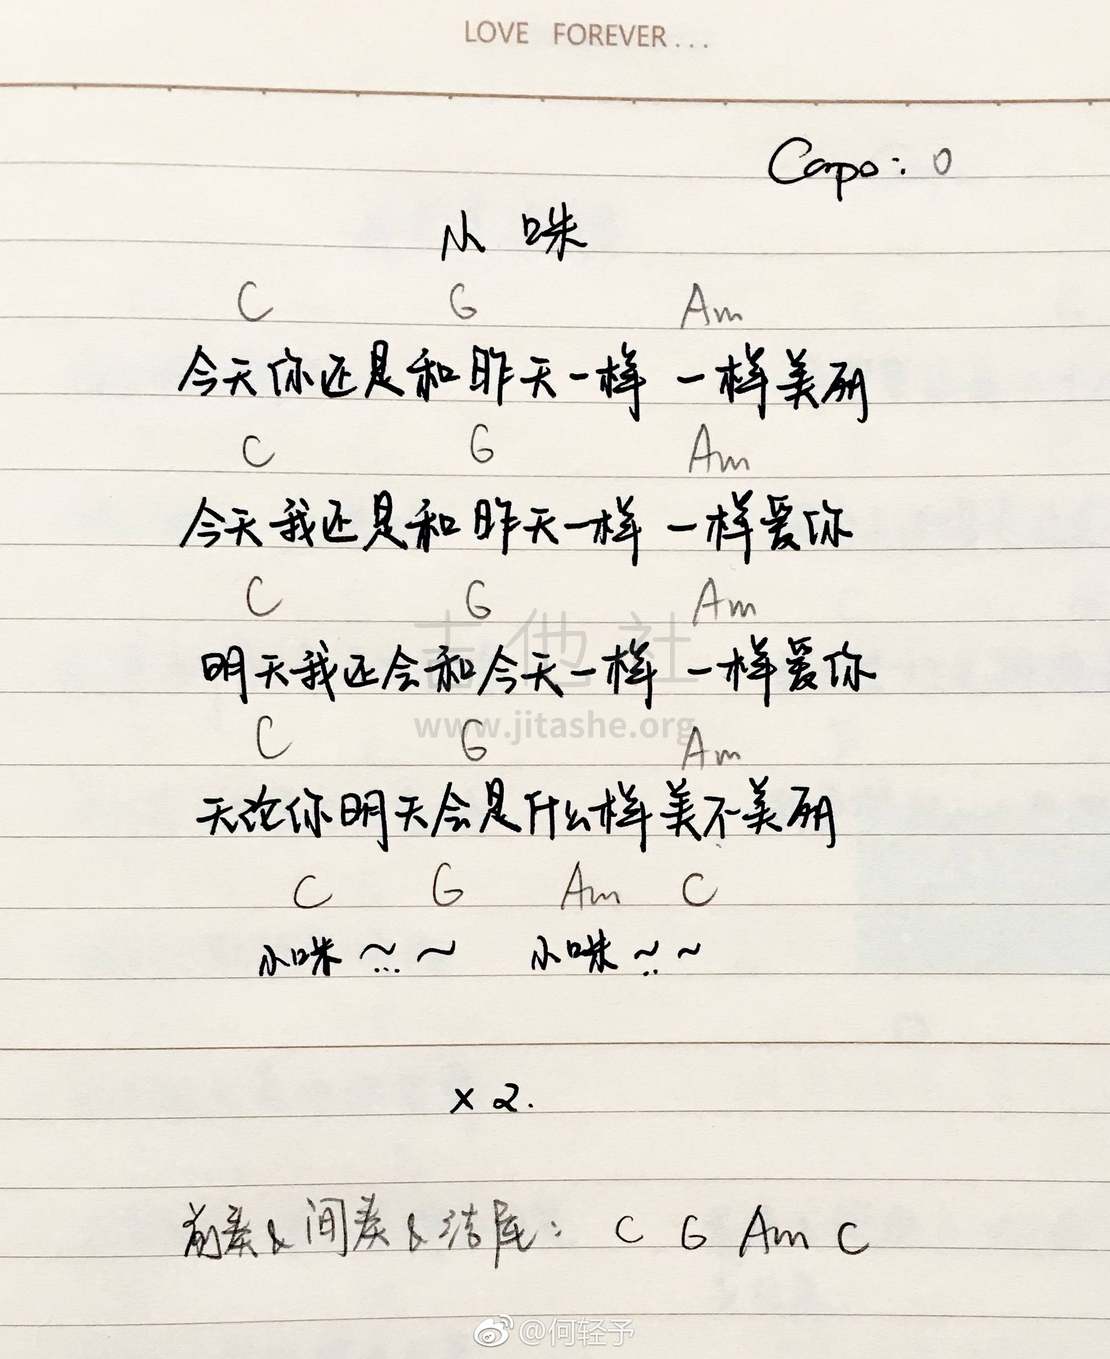 LOVE FOREVER...
Capo: 0
小咪
C G Am
今天你还是和昨天一样 一样美丽
C G Am
今天我还是和昨天一样 一样爱你
C G Am
吉他社
明天我还会和今天一样 一样爱你
www.jitashe.org
C G Am
无论你明天会是什么样 美不美丽
C G Am C
小咪~...~ 小咪~..~
x 2.
前奏&间奏&结尾: C G Am C
@何轻予